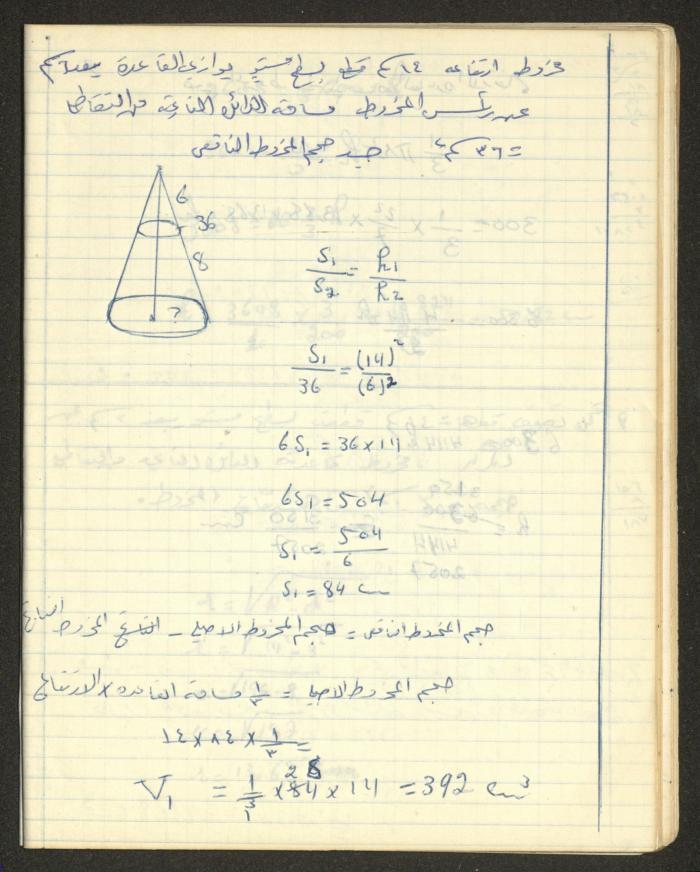 مخروط ارتفاعه ١٤ كم قطع بسطح مستوٍ يوازي القاعدة يبعد ٦ كم
عن رأس المخروط مساحة الدائرة الناتجة من التقاطع
= ٣٦ كم٢ جد حجم المخروط الناقص
6
36
8
?
S1/S2 = h1/h2
S1/36 = (14)²/(6)²
6S1 = 36 x 14
6S1 = 504
S1 = 504/6
S1 = 84 cm
حجم المخروط الناقص = حجم المخروط الاصلي - المخروط الناتج
حجم المخروط الاصلي = ١/٣ مساحة القاعدة x الارتفاع
= ١/٣ x ٨٤ x ١٤
V1 = 1/3 x 84 x 14 = 392 cm³
28
1